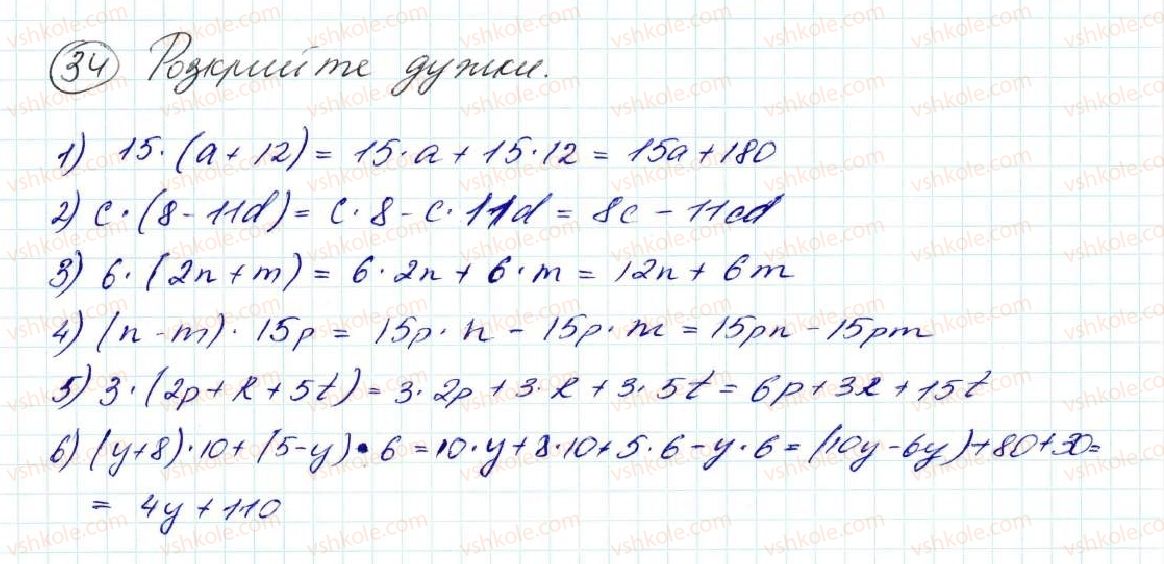 34 Розкрийте дужки.
1) 15·(a+12)=15·a+15·12=15a+180
2) c·(8-11d)=c·8-c·11d=8c-11cd
3) 6·(2n+m)=6·2n+6·m=12n+6m
4) (n-m)·15p=15p·n-15p·m=15pn-15pm
5) 3·(2p+k+5t)=3·2p+3·k+3·5t=6p+3k+15t
6) (y+8)·10+(5-y)·6=10·y+8·10+5·6-y·6=(10y-6y)+80+30=
=4y+110